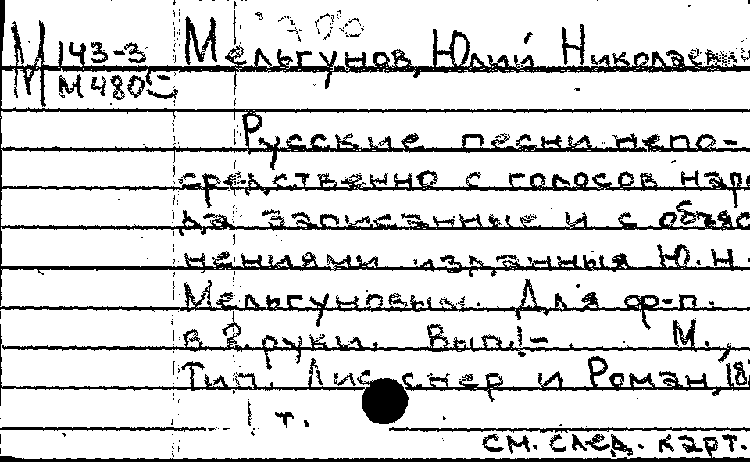 700
М 143-3 Мельгунов, Юлий Николаевич
М480
Русские песни непо-
средственно с голосов наро
да записанные и с объяс
нениями изданныя Ю.Н.
Мельгуновым. Для ф-п.
в 2 руки. Вып. 1- . М.,
Тип. Лисснер и Роман, 18
1 т.
см. след. карт.